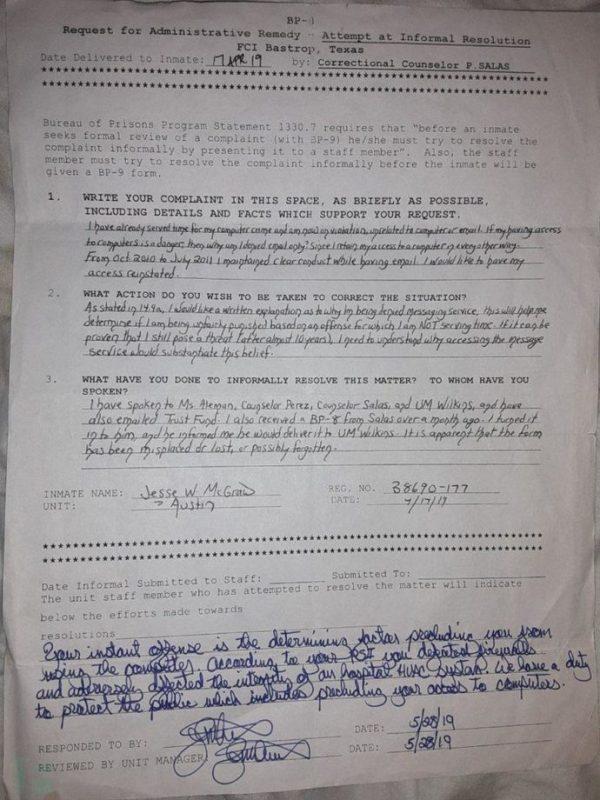 BP-
Request for Administrative Remedy - Attempt at Informal Resolution
FCI Bastrop, Texas
Date Delivered to Inmate: 17 APR 19 by: Correctional Counselor P.SALAS
Bureau of Prisons Program Statement 1330.7 requires that "before an inmate
seeks formal review of a complaint (with BP-9) he/she must try to resolve the
complaint informally by presenting it to a staff member". Also, the staff
member must try to resolve the complaint informally before the inmate will be
given a BP-9 form.
1. WRITE YOUR COMPLAINT IN THIS SPACE, AS BRIEFLY AS POSSIBLE,
INCLUDING DETAILS AND FACTS WHICH SUPPORT YOUR REQUEST.
I have already served time for my computer crime and am now on violation, unrelated to computer or email. If my having access
to computers is a danger, then why am I denied email only? Since I retain my access to a computer in every other way.
From Oct 2010 to July 2011 I maintained clear conduct while having email. I would like to have my
access reinstated.
2. WHAT ACTION DO YOU WISH TO BE TAKEN TO CORRECT THE SITUATION?
As stated in 14.9a, I would like a written explanation as to why I'm being denied messaging service, this will help me
determine if I am being unfairly punished based on an offense for which I am NOT serving time. If it can be
proven that I still pose a threat (after almost 10 years), I need to understand why accessing the message
service would substantiate this belief.
3. WHAT HAVE YOU DONE TO INFORMALLY RESOLVE THIS MATTER? TO WHOM HAVE YOU
SPOKEN?
I have spoken to Ms. Aleman, Counselor Perez, Counselor Salas, and UM Wilkins, and have
also emailed Trust Fund. I also received a BP-8 from Salas over a month ago. I turned it
in to him, and he informed me he would deliver it to UM Wilkins. It is apparent that the form
has been misplaced or lost, or possibly forgotten.
INMATE NAME: Jesse W. McGraw REG. NO. 38690-177
UNIT: Austin DATE: 4/17/19
Date Informal Submitted to Staff: Submitted To:
The unit staff member who has attempted to resolve the matter will indicate
below the efforts made towards
resolutions
Your instant offense is the determining factor precluding you from
using the computer. According to your PSI you defeated firewalls
and adversely affected the integrity of an hospital HVAC system. We have a duty
to protect the public which includes precluding your access to computers.
RESPONDED TO BY: DATE: 5/28/19
REVIEWED BY UNIT MANAGER: DATE: 5/28/19